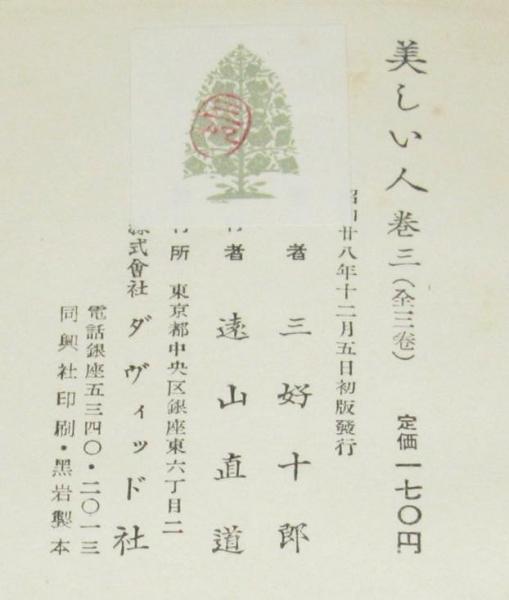 美しい人 巻三(全三巻) 定価一七〇円
廿八年十二月五日初版發行
者 三好十郎
者 遠山直道
所 東京都中央区銀座東六丁目二
式會社 ダヴィッド社
電話銀座五三四〇・二〇一三
同興社印刷・黑岩製本